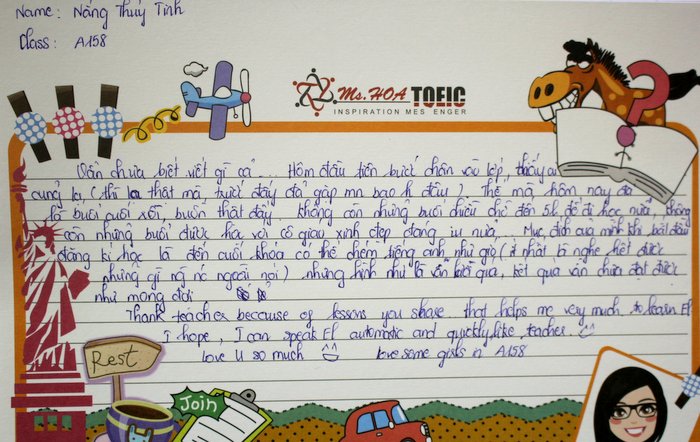 Name: Nàng Thủy Tinh
Class: A158
Ms. HOA TOEIC
INSPIRATION MESSENGER
Vẫn chưa biết viết gì cả... Hôm đầu tiên bước chân vào lớp, thấy
cũng lạ, (thì lạ thật mà, trước đấy đã gặp mn bao h đâu). Thế mà hôm nay đã
là buổi cuối rồi, buồn thật đấy. Không còn những buổi chiều chờ đến 5h để đi học nữa, không
còn những buổi được học với cô giáo xinh đẹp đáng iu nữa... Mục đích của mình khi bắt đầu
đăng kí học là đến cuối khóa có thể chém tiếng anh như gió (ít nhất là nghe hết được
những gì ng nc ngoài nói) nhưng hình như là vẫn lười quá, kết quả vẫn chưa đạt được
như mong đợi
Thank teacher beccause of lessons you share. that helps me very much to learn El
I hope, I can speak El automatic and quickly, like teacher.
love U so much love some girls in A158
Rest
Join
?